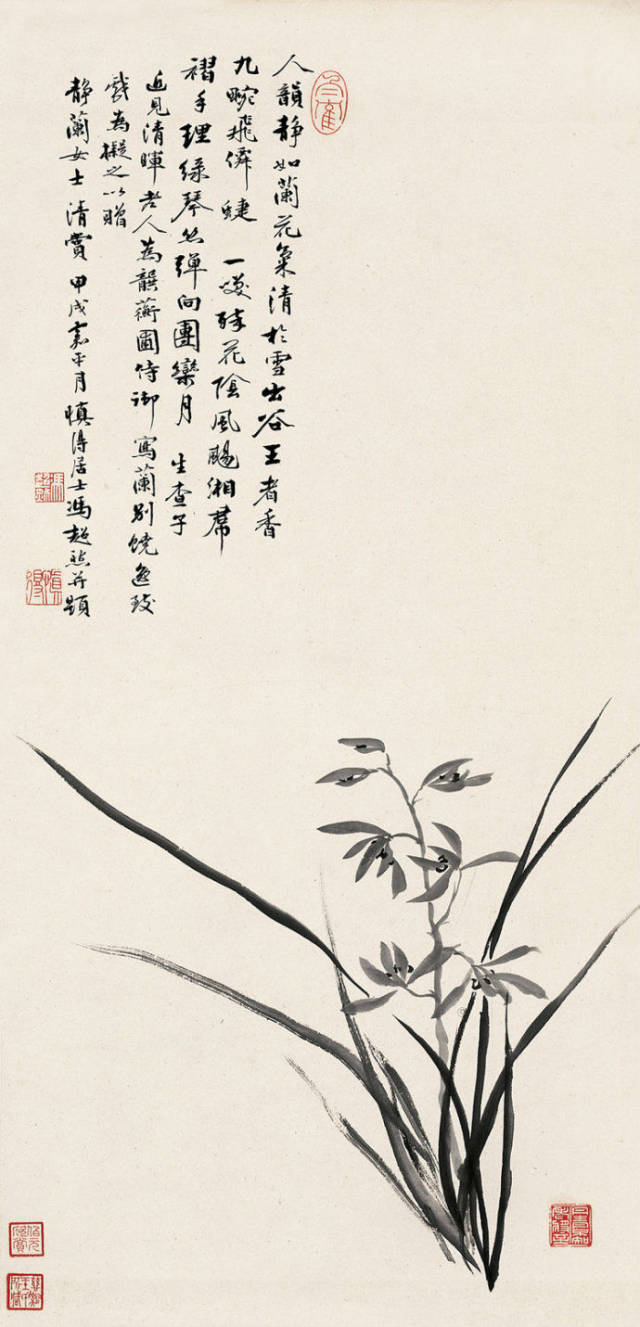 人韻静如蘭花氣清於雪出谷王者香
九畹飛僊蜨 一笑珠花陰風颺湘帬
褶手理綠琴絲彈向團欒月 生查子
近見清暉老人為韻薌圖侍御寫蘭別饒逸致
戲為擬之以贈
静蘭女士清賞 甲戌嘉平月慎得居士馮超然并題